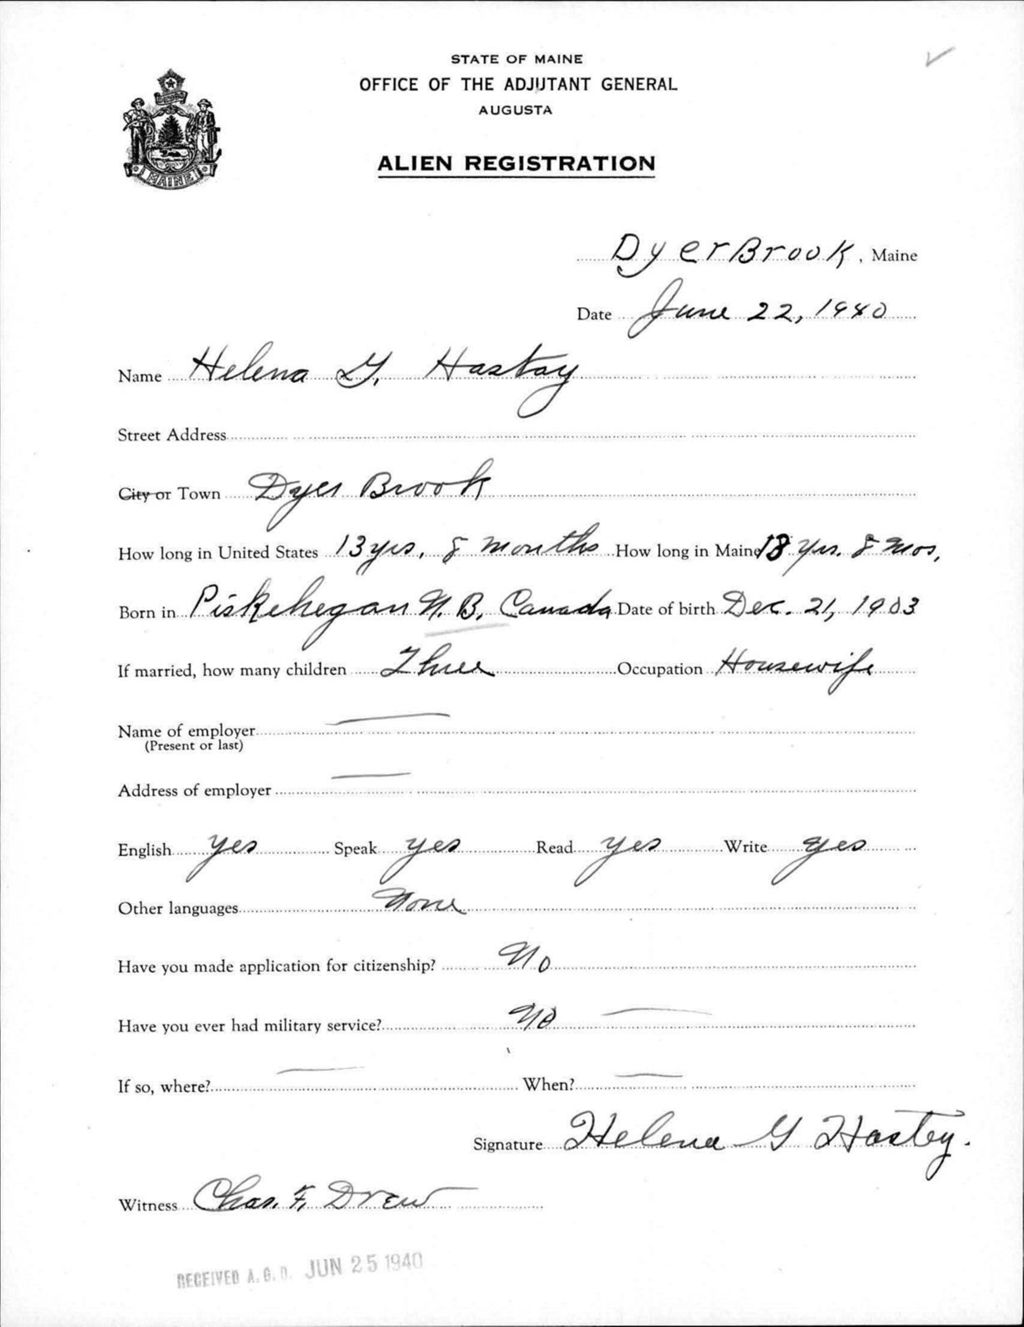 STATE OF MAINE
OFFICE OF THE ADJUTANT GENERAL
AUGUSTA
ALIEN REGISTRATION
MAINE
Dyer Brook, Maine
Date June 22, 1940
Name Helena G. Hastay
Street Address
City or Town Dyer Brook
How long in United States 13 yrs. 8 months How long in Maine 13 yrs. 8 mos,
Born in Piskehegan N. B. Canada Date of birth Dec. 21, 1903
If married, how many children Three Occupation Housewife
Name of employer
(Present or last)
Address of employer
English yes Speak yes Read yes Write yes
Other languages None
Have you made application for citizenship? No
Have you ever had military service? No
If so, where? When?
Signature Helena G Hastey.
Witness Chas. F. Drew
RECEIVED A.G.O. JUN 25 1940